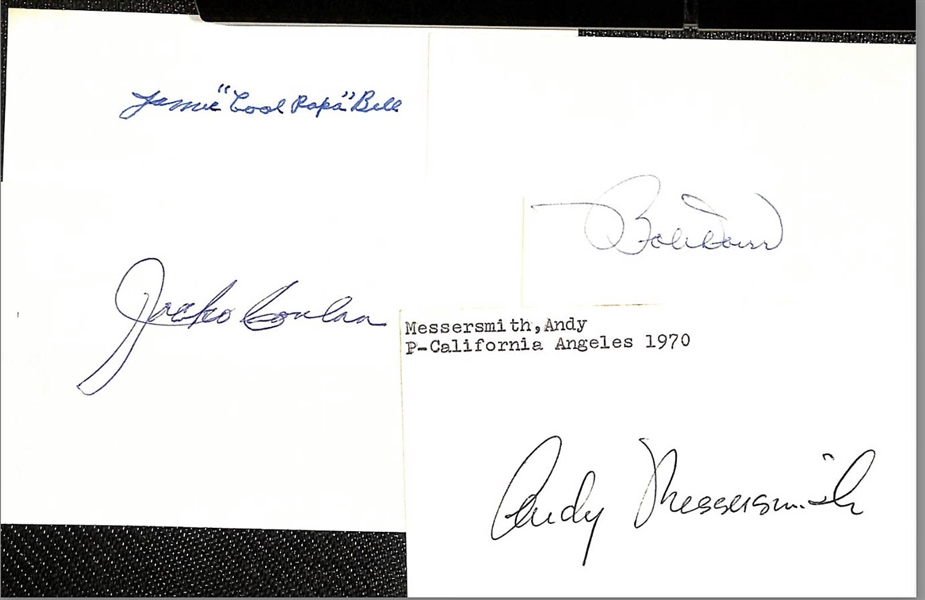 James "Cool Papa" Bell
Bob Doerr
Jocko Conlan
Messersmith,Andy
P-California Angeles 1970
Andy Messersmith